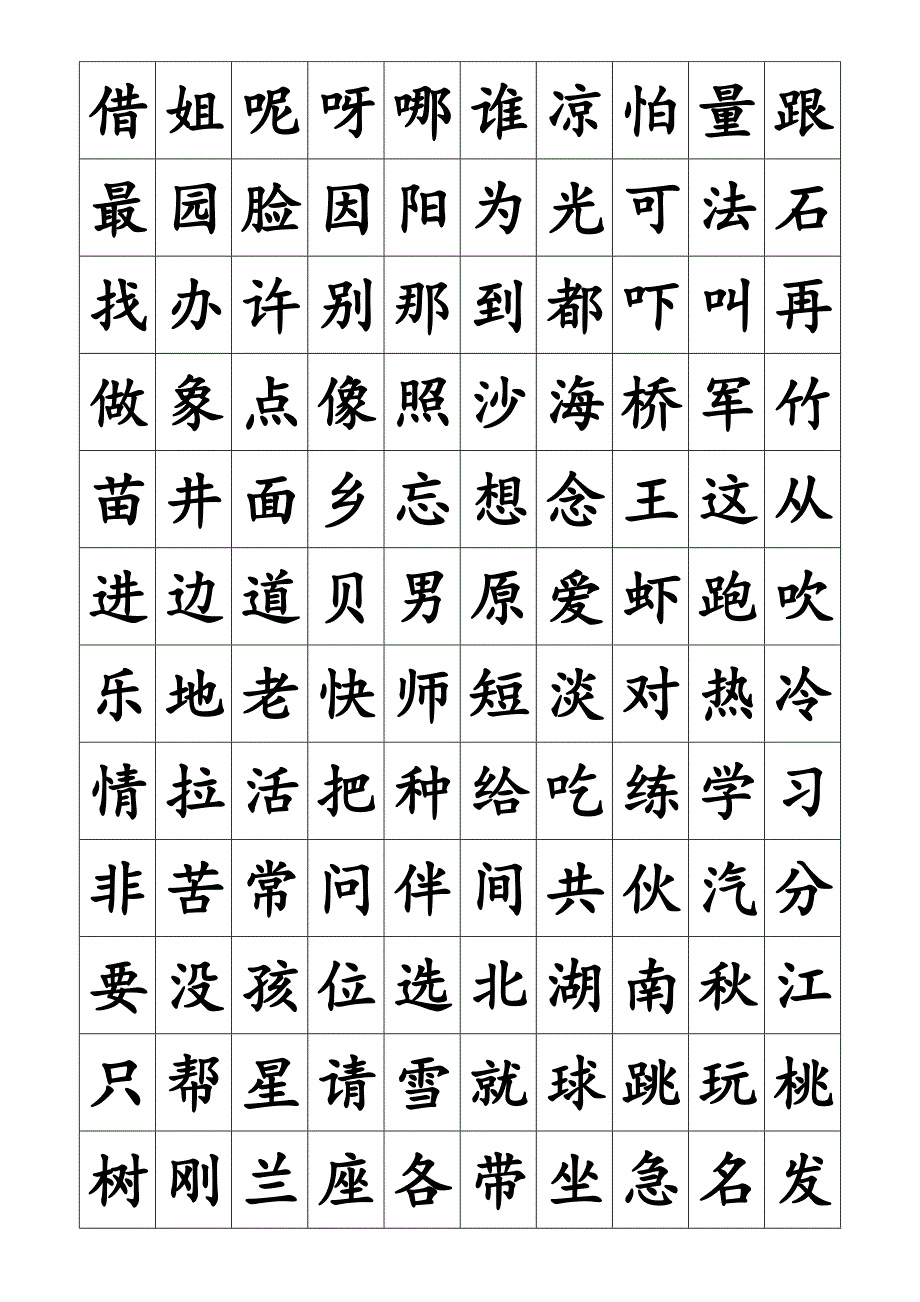 借姐呢呀哪谁凉怕量跟
最园脸因阳为光可法石
找办许别那到都吓叫再
做象点像照沙海桥军竹
苗井面乡忘想念王这从
进边道贝男原爱虾跑吹
乐地老快师短淡对热冷
情拉活把种给吃练学习
非苦常问伴间共伙汽分
要没孩位选北湖南秋江
只帮星请雪就球跳玩桃
树刚兰座各带坐急名发